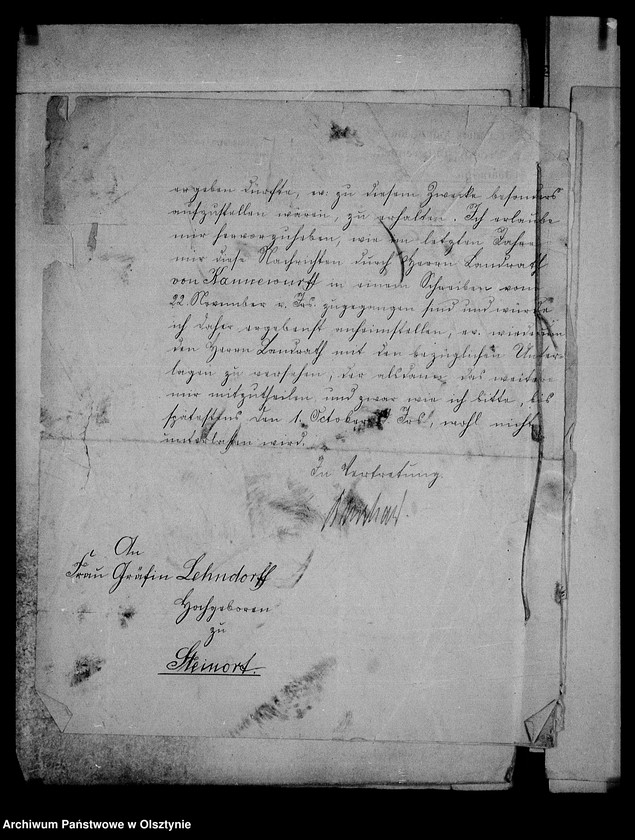 ergeben dürfte, ev. zu diesem Zwecke besonders
aufzustellen wären, zu erhalten. Ich erlaube
mir hervorzuheben, wie im letzten Jahre
mir diese Nachrichten durch Herrn Landrath
von in einem Schreiben vom
22 November v. Js. zugegangen sind und würde
ich daher ergebenst anheimstellen, ev. wiederum
den Herrn Landrath mit den bezüglichen Unter-
lagen zu versehen, der alsdann das weitere
mir mitzutheilen und zwar wie ich bitte, bis
spätestens den 1. October Js., wohl nicht
unterlassen wird.
In Vertretung.
An
Frau Gräfin Lehndorff
Hochgeboren
zu
Steinort.
Archiwum Państwowe w Olsztynie